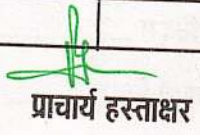 प्राचार्य हस्ताक्षर